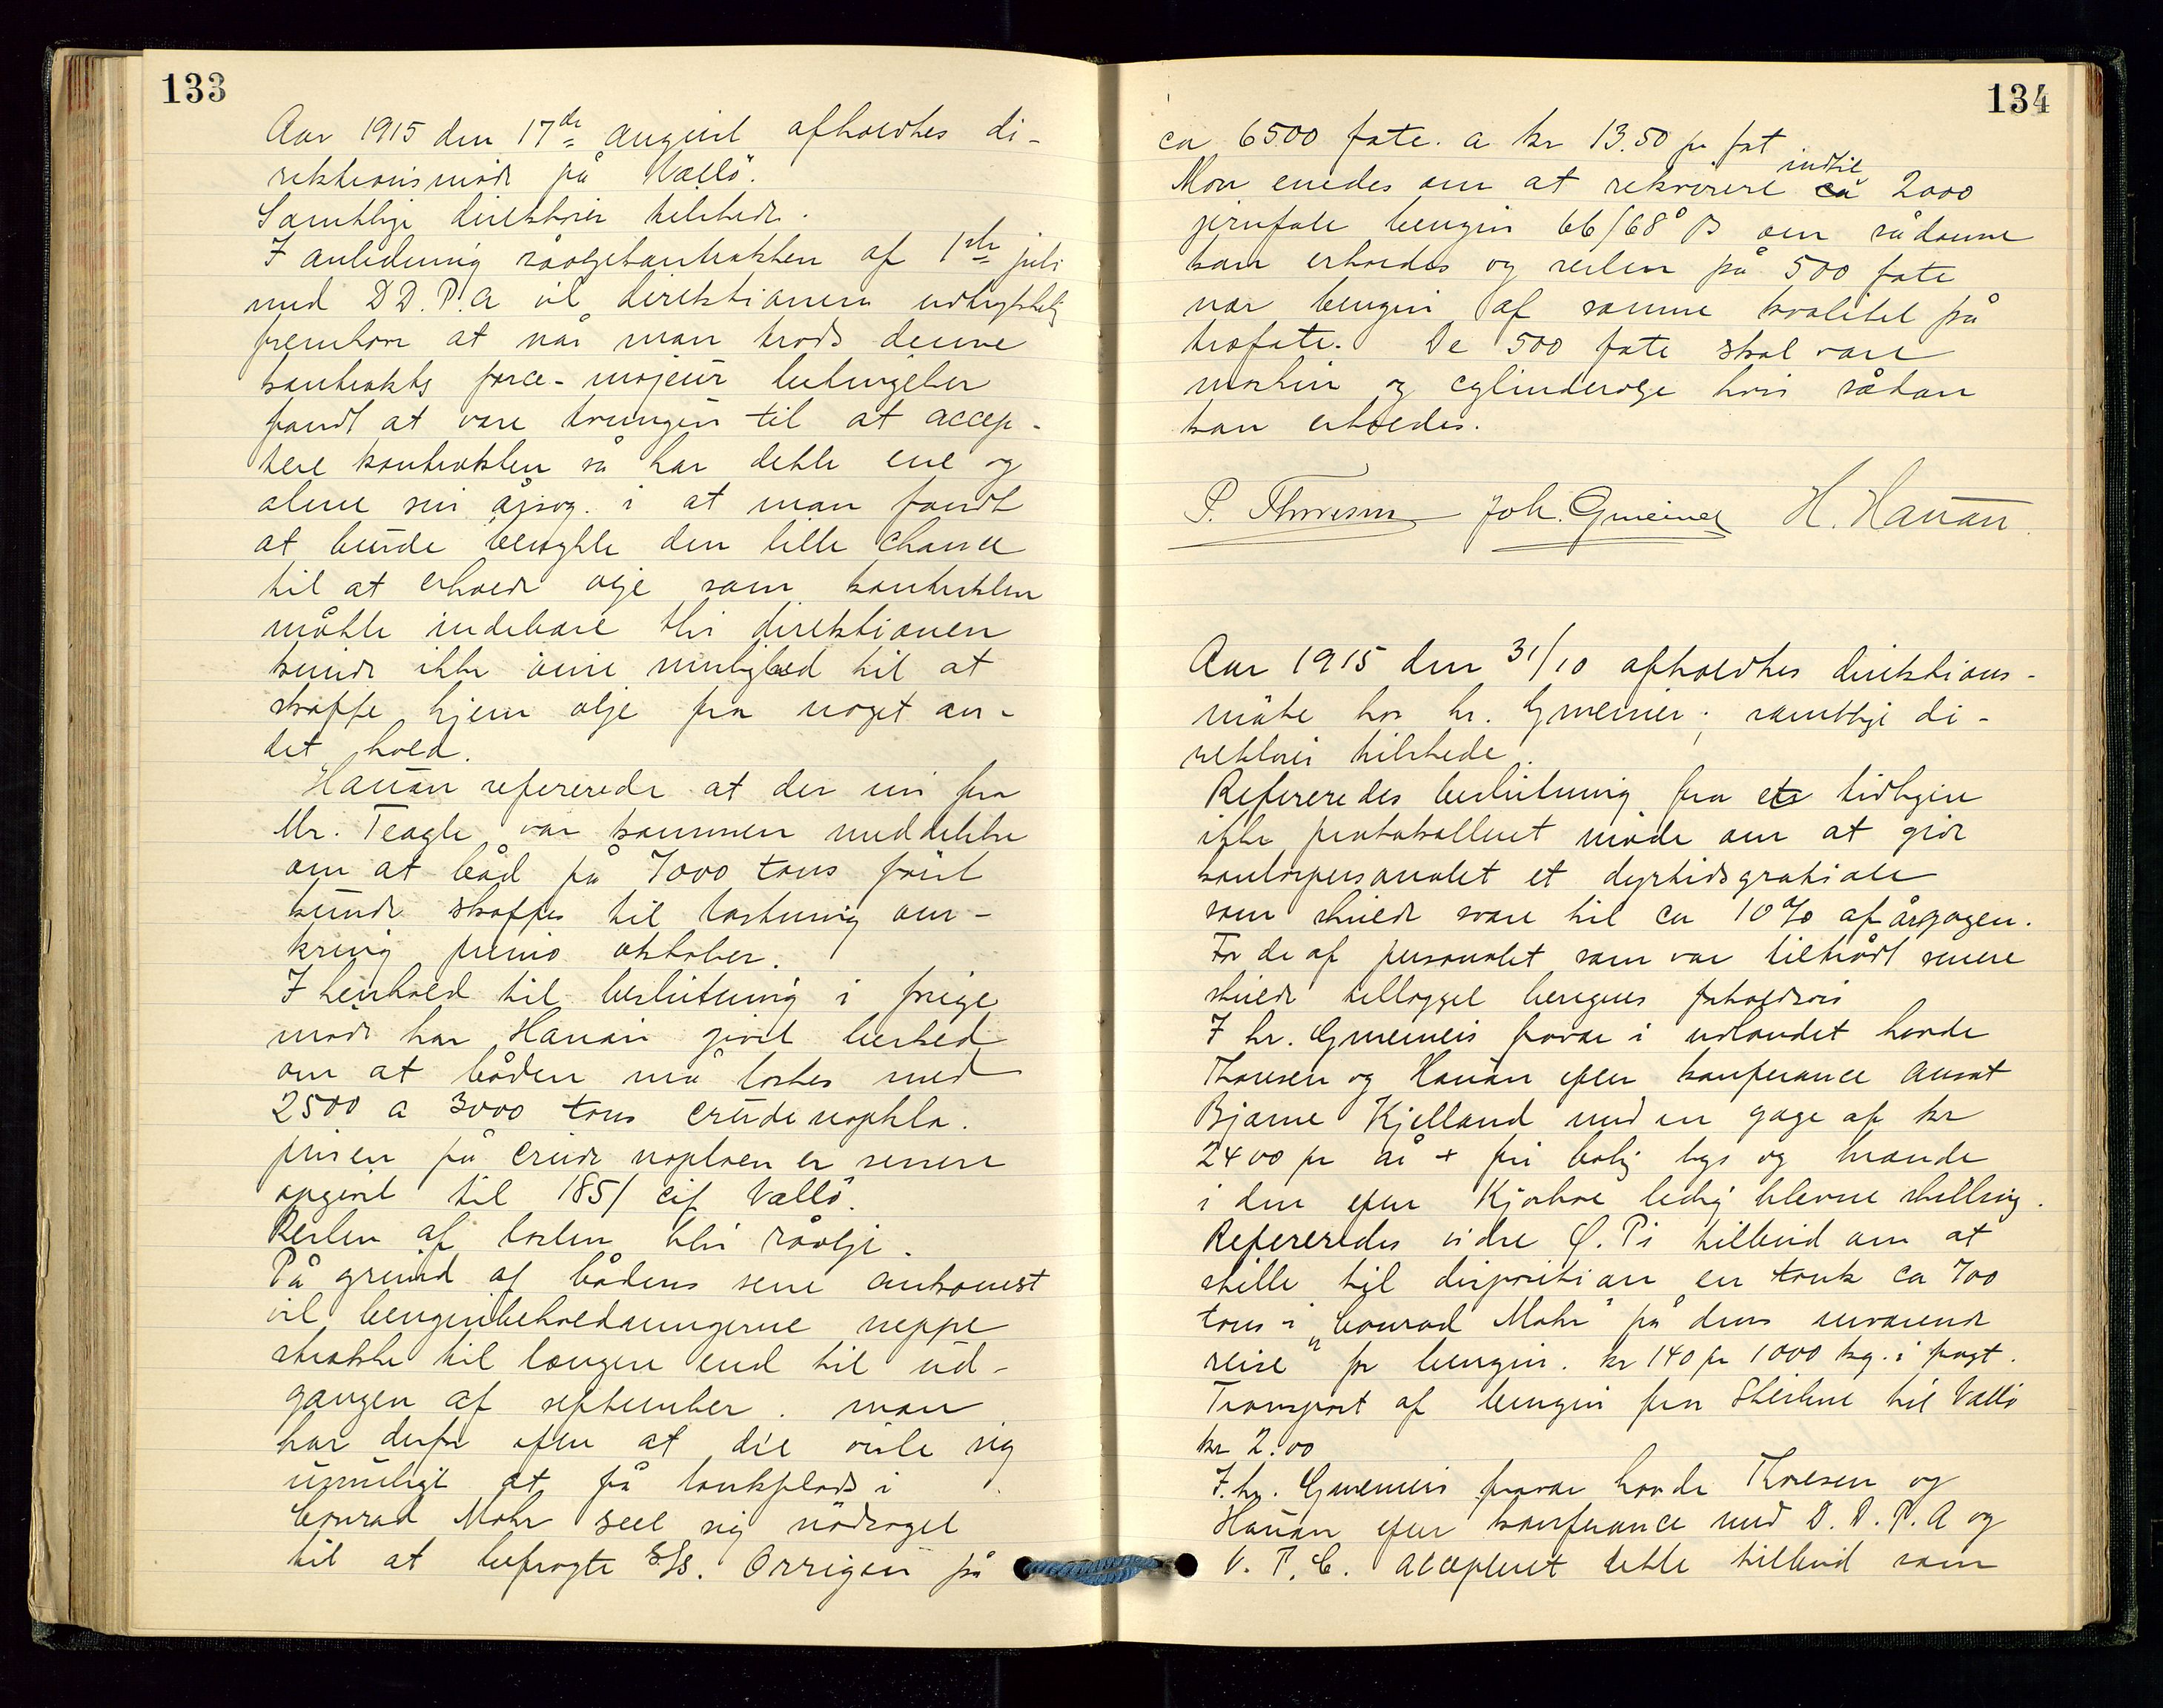 133
Aar 1915 den 17de august afholdtes di-
rektionsmöde på Vallö.
Samtlige direktörer tilstede.
I anledning råoljekontrakten af 1ste juli
med D.D.P.A vil direktionen udtrykkelig
fremhæve at når man trods denne
kontrakts force-majeur betingelser
fandt at være tvungen til at accep-
tere kontrakten så har dette ene og
alene sin årsag i at man fandt
at burde benytte den lille chance
til at erholde olje som kontrakten
måtte indebære thi direktionen
kunde ikke øine mulighed til at
skaffe hjem olje fra noget an-
det hold.
Hauan refererede at der nu fra
Mr. Teagle var kommen meddelelse
om at båd på 7000 tons först
kunde skaffes til lastning om-
kring primo oktober.
I henhold til beslutning i forrige
möde har Hauan givet besked
om at båden må lastes med
2500 a 3000 tons crude naphta.
prisen på crude naphtaen er senere
opgivet til 185/ cif Vallö.
Resten af lasten blir råolje.
På grund af bådens sene ankomst
vil benzinbeholdningerne neppe
strække til længere end til ud-
gangen af september. man
har derfor efter at det viste sig
umuligt at få tankplads i
Conrad Mohr seet sig nödsaget
til at befragte S/S. Orrigen på
134
ca 6500 fate. a kr 13.50 pr fat
indtil
Man enedes om at rekvirere ca 2000
jernfate benzin 66/68° B om sådanne
kan erholdes og resten på 500 fate
var benzin af samme kvalitet på
træfate. De 500 fate skal være
maskin og cylinderolje hvis sådan
kan erholdes.
P. Thoresen Joh. Gmeiner H. Hauan
Aar 1915 den 31/10 afholdtes direktions-
möte hos hr. Gmeiner; samtlige di-
rektörer tilstede.
Refereredes beslutning fra et tidligere
ikke protokolleret möde om at give
kontorpersonalet et dyrtidsgratiale
som skulde svare til ca 10% af årsgagen.
For de af personalet som var tiltrådt senere
skulde tillægget beregnes forholdsvis
I hr. Gmeiners fravær i udlandet havde
Thoresen og Hauan efter konferance ansat
Bjarne Kjelland med en gage af kr
2400 pr år + fri bolig lys og brænde
i den efter Kjorboe ledig blevne stilling.
Refereredes vidre Ö. P's tilbud om at
stille til disposition en tank ca 700
tons i "Conrad Mohr" på dens nuværende
reise for benzin. kr 140 pr 1000 kg. i fragt.
Transport af benzin fra Steilene til Vallö
kr 2.00
I hr. Gmeiners fravær havde Thoresen og
Hauan efter konferance med D.D.P.A og
V.P.C. accepteret dette tilbud som